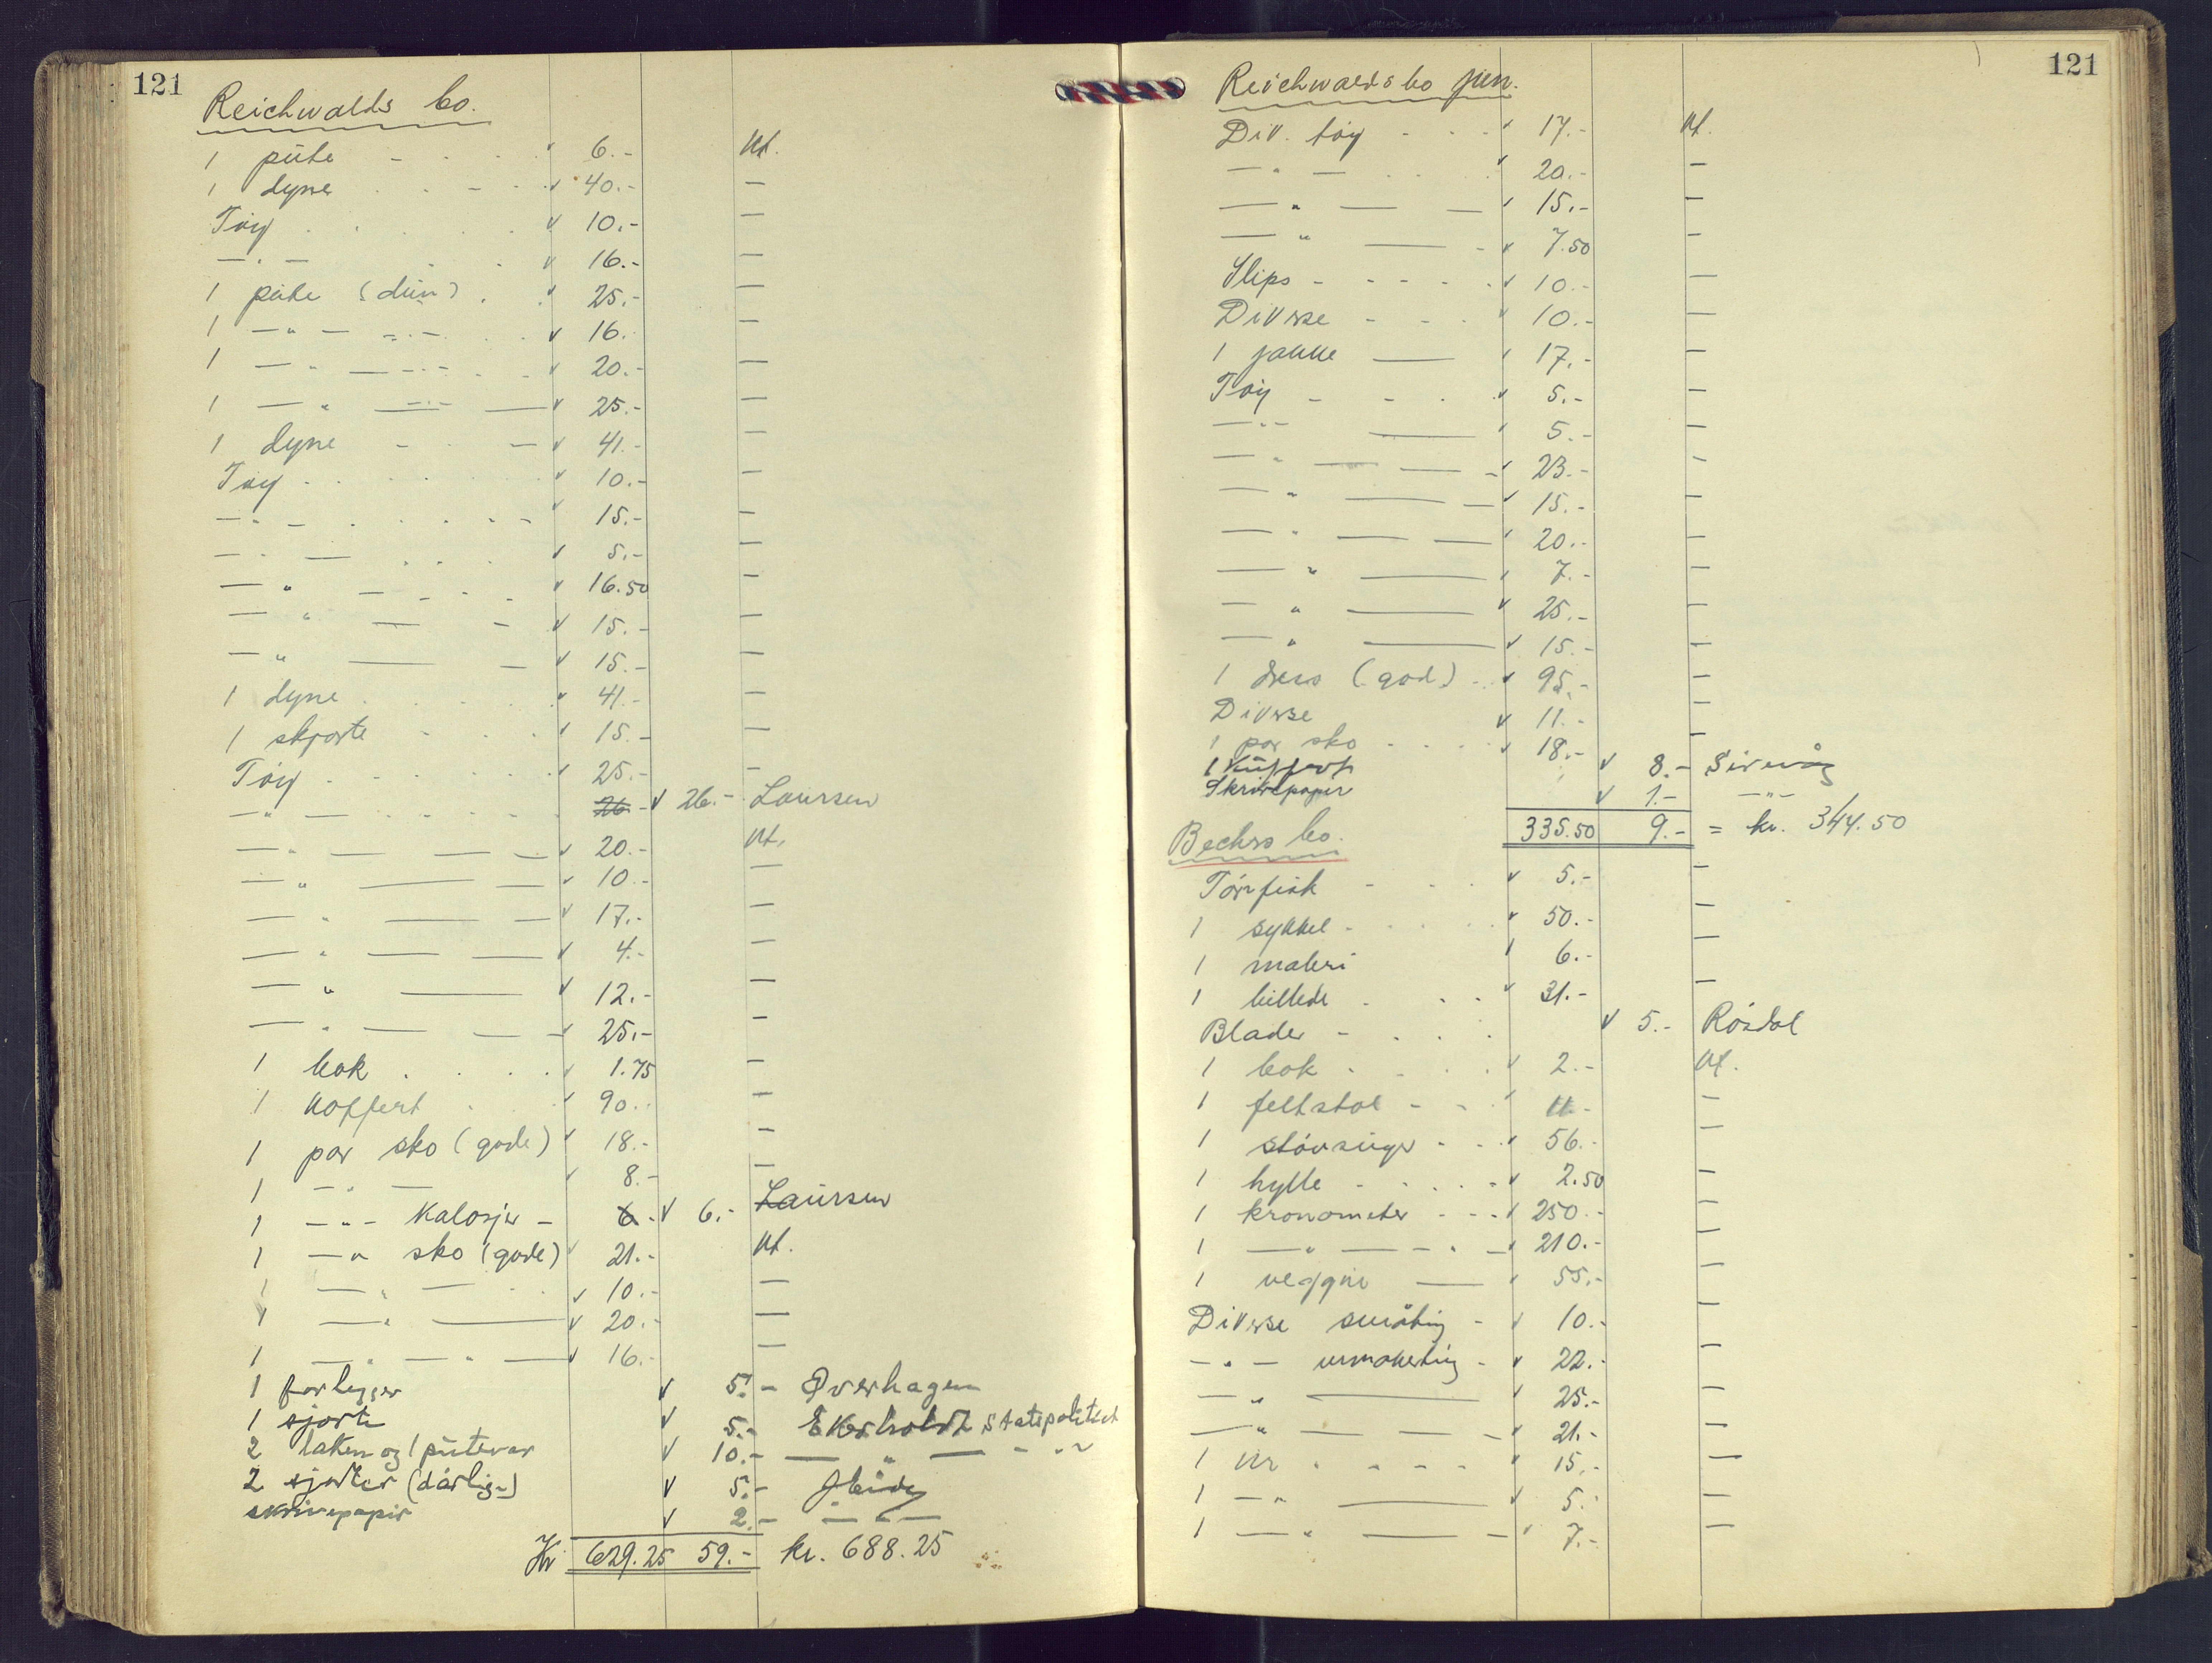 121
Reichwalds bo.
1 pute - . . . v 6.- Kt.
1 dyne . . - . v 40.- —
Tøy . . . . . v 10.- —
— . — . . v 16.- —
1 pute (dun) . . v 25.- —
1 — " — — " — . . v 16. —
1 — " — — " — . . v 20.- —
1 — " — — " — — v 25.- —
1 dyne - . — v 41.- —
Tøy . . . . . v 10.- —
— " — . . . . . v 15.- —
— " — . . . v 5.- —
— " — . . . v 16.50 —
— " — - v 15.- —
— " — — v 15.- —
1 dyne . . . . v 41.- —
1 skjorte - . . . v 15.- —
Tøy . . . . . v 25.- —
— " — . . . . . 26 - v 26.- Laursen
— " — — — v 20.- Kt.
— " — — v 10.- —
— " — — v 17.- —
— " — — v 4.- —
— " — v 12.- —
— " — — — v 25.- —
1 bok . . . . v 1.75 —
1 Koffert . . v 90.- —
1 par sko (gode) v 18.- —
1 — " — v 8.- —
1 — " — Kalosjer — 6.- v 6.- Laursen
1 — " sko (gode) v 21.- Kt.
1 — " — . . v 10.- —
1 — " — v 20.- —
1 — " — " — v 16.- —
1 forlegger v 5.- Øverhagen
1 sjorte v 5.- Ekerholdt Statspolitiet
2 laken og 1 putevar v 10.- — " — - " -
2 sjorter (dårlige) v 5.-
skrivepapir v 2.- — " —
Kr 629.25 59.- kr. 688.25
121
Reichwalds bo jun.
Div. tøy - - - v 17.- Kt.
— " — . . v 20.- —
— " — — v 15.- —
— " — - v 7.50 —
Slips - - - - - v 10.- —
Diverse - - - v 10.- —
1 jakke — v 17.- —
Tøy - - . v 5.- —
— " — — v 5.- —
— " — — - v 23.- —
— " — — v 15.- —
— " — — — v 20.- —
— " — v 7.- —
— " — v 25.- —
— " — v 15.- —
1 dress (god) - . v 95.- —
Diverse v 11.- —
1 par sko - . . . v 18.- —
1 Kuffert v 8.- Sirevåg
Skrivepapir v 1.- — " —
335.50 9.- = kr. 344.50
Bechs bo.
Tørrfisk - . . v 5.- —
1 sykkel - . . . . v 50.- —
1 maleri v 6.- —
1 billede - . . v 31.- —
Blader - . . . v 5.- Rösdal
1 bok . . . . v 2.- Kt.
1 feltstol - - v 11.- —
1 støvsuger - . . v 56.- —
1 hylle - . . . - v 2.50 —
1 kronometer - - - v 250.- —
1 — " — — " — v 210.- —
1 veggur — v 55.- —
Diverse småting - v 10.- —
— " — urmakerting - v 22.- —
— " — v 25.- —
— " — — — v 21.- —
1 Ur . - - - v 15.- —
1 — " — v 5.- —
1 — " — — v 7.- —